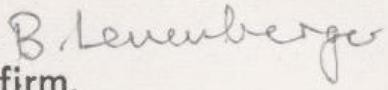 B. Leuenberger
firm.